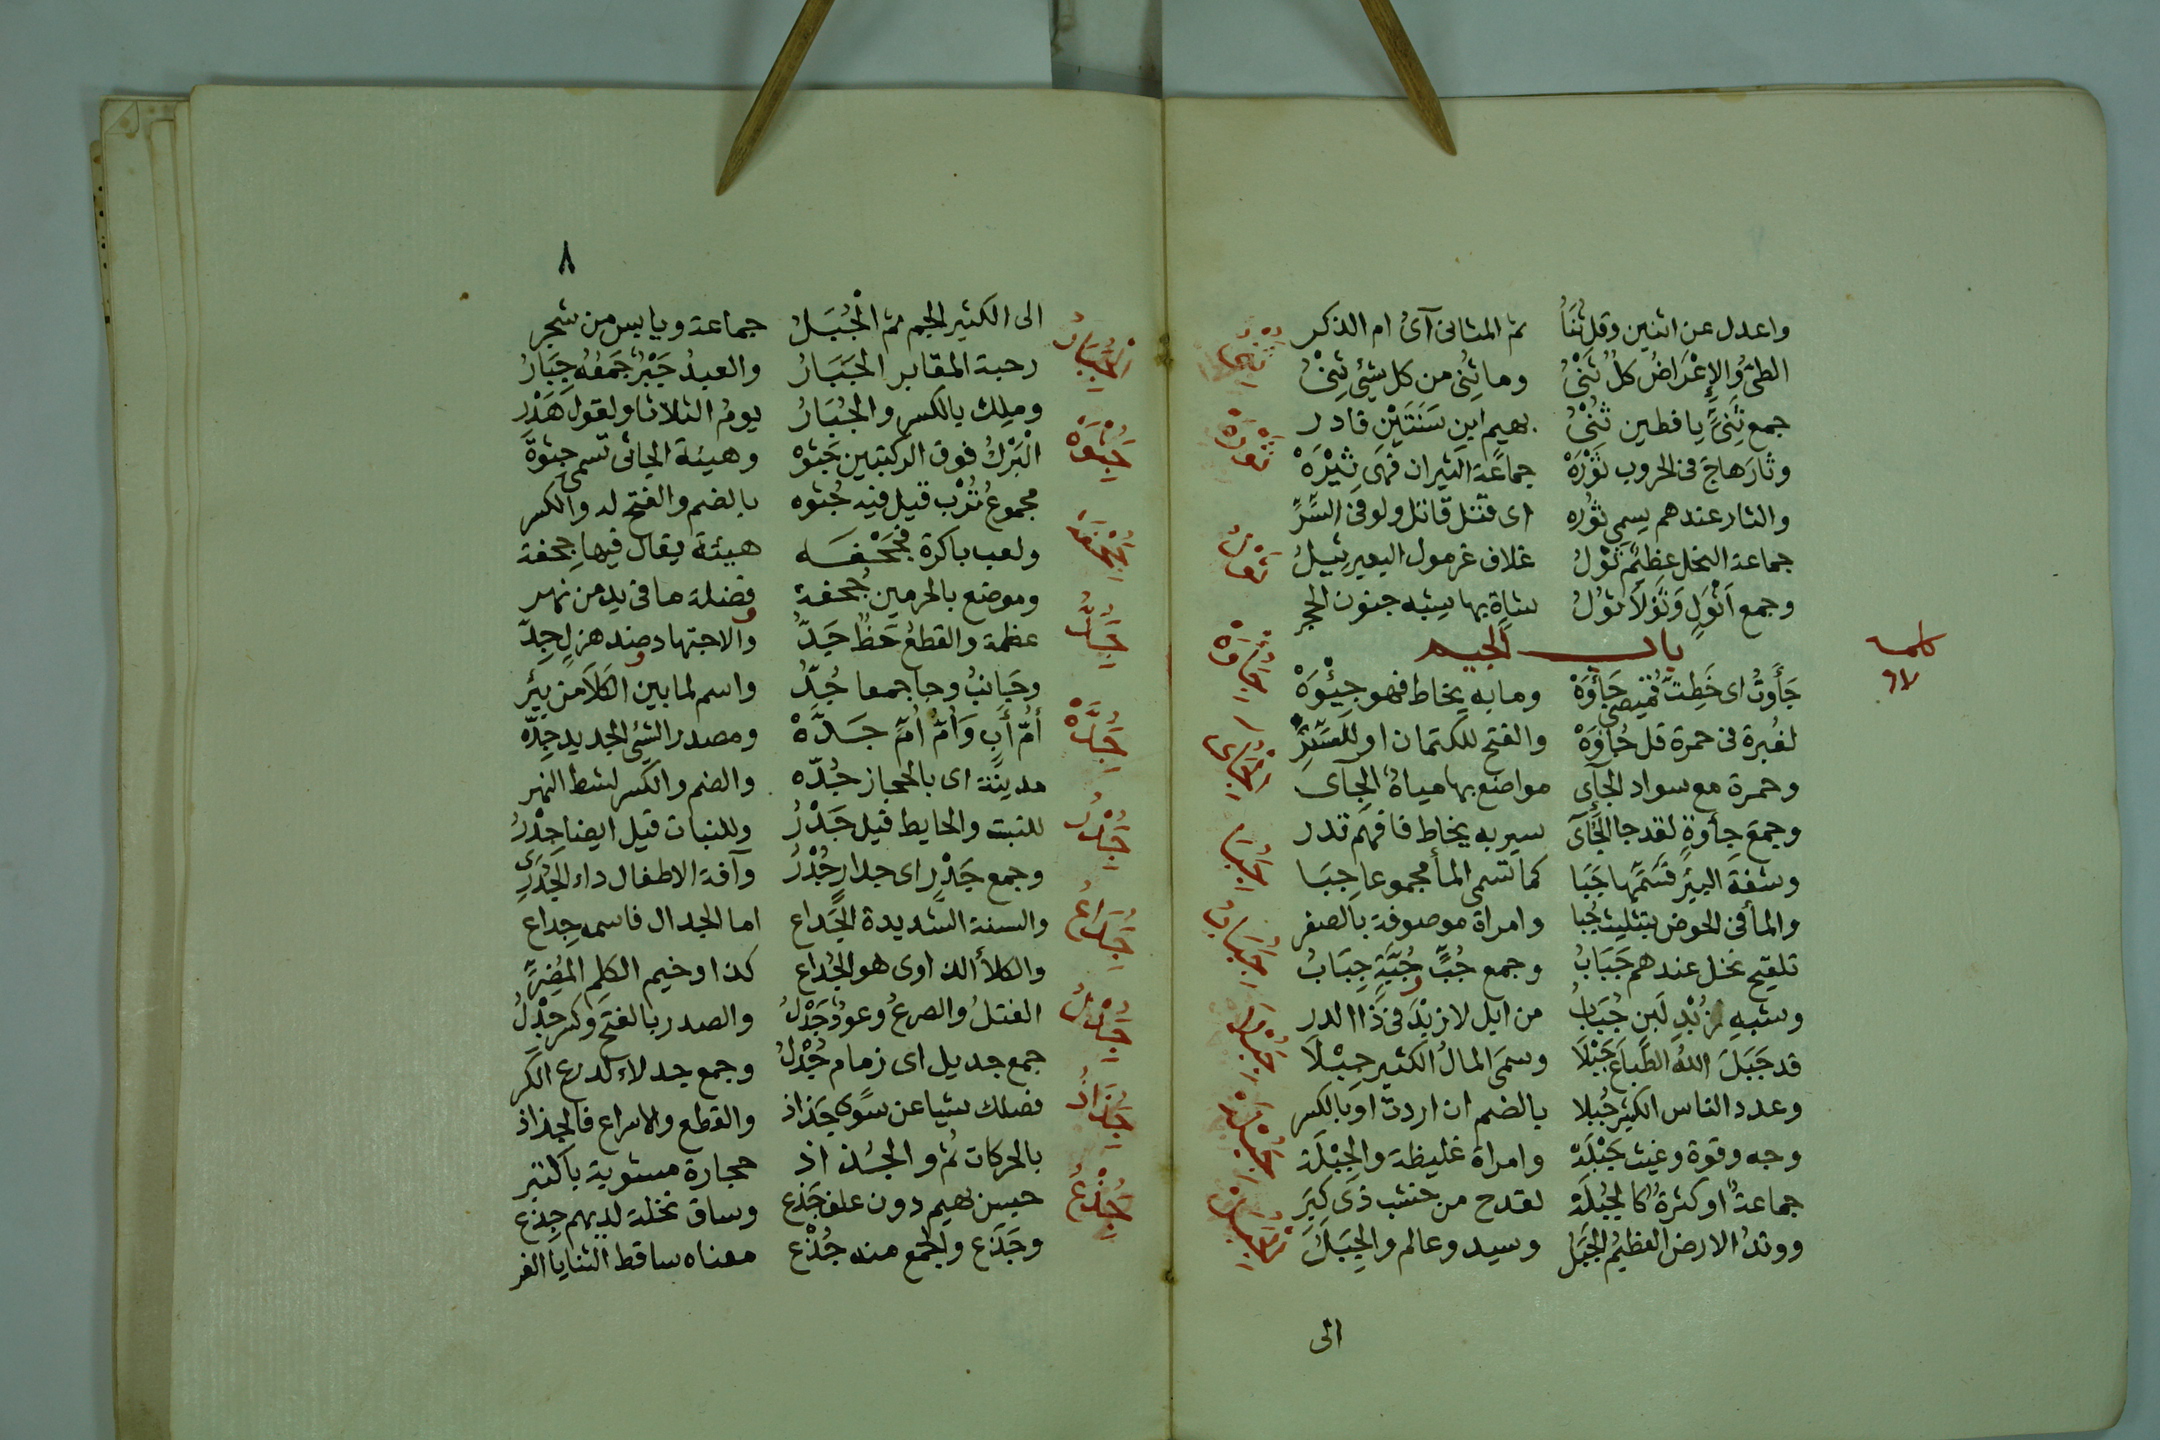 واعدل عن اثنين وقل ثُنَاُ ثم المثانى آىُ ام الذكر
الطىُّ وَالإِعْرَاضُ كلٌ ثَنْىُ وما ثُنِى من كل شئٍ ثِنْىُ
جمع ثِنًى يا فطين ثُنْىُ بهيم ابن سَنَتَيْنِ قادر
وثارَ هاجَ فى الحروب ثَوْرَهْ جماعة الثيران فَهَى ثِيْرَهْ
والثار عندهم يسمى ثُوره اى قتل قاتل ولو فى السَّرِّ
جماعة النحل عظيمٌ ثَوْلُ غلاف غرمول البعير ثِيلُ
وجمع اَثْوَلٍ وَثَوْلَا ثُوْلُ شاةٍ بها يشبه جنون الحجر
باب الجيم
كلمه
٦٧
جَأَوتُ اى خَطِتُّ قميصى جَأْوَهْ وما به يخاط فهو جِئْوَهْ
لغُبرة فى حمرة قل جُأوَهْ والفتح للكتمان او للسَّتِرِّ
وحمرة مع سواد الجَآى مواضع بها مياهُ الجِآى
وجمعَ جاُوةٍ لقد جا الجُآى سير به يخاط فافهم تدر
وشفة البئر فَسَمِّها جَبَا كما تسمى الماَ مجموعا جِبَا
والما فى الحوض بتثليث جُبا وامراة موصوفة بالصفر
تلقيح نخل عندهم جَبَابُ وجمع جُبٍّ جُبَّةٍ جِبَابُ
وشبه زُبْدِ لَبن جُبَابُ من ابل لا زبْدَ فى ذا الدر
قد جَبَلَ اللهُ الطباعَ جَبْلَا وسمى المالُ الكثير جِبْلَا
وعدد الناس الكثير جُبلا بالضم ان اردت او بالكسر
وجه وقوة وغيث جَبْلَهْ وامراة غليظة والجِبْلَهْ
جماعةٌ او كثرةٌ كالجُبْلَهْ لقدح من خشب ذى كِبَرَ
ووتدُ الارض العظيمُ الجَبَل وسيد وعالم والجِبَلُ
الى
ثنى
ثَوْرَهْ
ثَوْلُ
جَأْوَهْ
الجَآى
الجَبَا
جَبَابُ
جَبْلَا
جَبْلَهْ
الجَبَلُ
٨
الى الكثير الجم ثم الْجُبَلُ جماعة ويابس من شجر
رحبة المقابر الجَبَّارُ والعبدُ جَبْرُ جَمْعُهُ جِبَارُ
وملِك بالكسر والجُبَارُ يومُ الثلاثا ولقول هَدْر
الْبَرْكُ فوق الركبتين جَثْوَهْ وهيئة الجاثى تسمى جِثْوَهْ
مجموعُ تُرْبٍ قيل فيه جُثوه بالضم والفتح له والكسر
ولعب باكرة فجَحْفَه هيئة يقال فيها جِحفة
وموضع بالحرمين جُحفة فضلة ما فى يدٍ من نهر
عظمة والقطعُ حَظُّ جَدُّ والاجتهاد ضد هزلٍ جِدُّ
وجَانبُ وجا جمعا جُدُّ واسم لما بين الكَلَا من بِئر
أُمُّ أَبٍ وَأُمُّ أُمٍّ جَدَّهْ ومصدر الشئ الجديد جِدَّه
مدينة اى بالحجاز جُدّه والضم والكسر لشط النهر
للنبت والحايط قيل جَدْرُ وللنبات قيل ايضا جِدْرُ
وجمع جَدْرٍ اى جدارٍ جُدْرُ وآفة الاطفال داء الجُدَرِى
والسنة الشديدة الجَداع اما الجدال فاسمه جِداع
والكلأ الذاوى هو الجُداع كذا وخيم الكلم المُضِرِّ
الفتلُ والصرعُ وعودٌ جَدْلُ والصدر بالفتح وكسر جِدْلُ
جمع جديل اى زمام جُدْلُ وجمع جدلاء كدرع الكَر
فصلك شيا عن سوى جَذاذ والقطع والاسراع فالجِذاذ
بالحركات ثُم والجُذاذ حجارة مستوية باكثر
حبس بهيم دون علف جَذع وساق نخلة لديهم جِذع
وجَذَع والجمع منه جُذْع معناه ساقط الثنايا الغر
الجَبَّارُ
جَثْوَهْ
جَحْفَة
جَدُّ
جَدَّهْ
جَدْرُ
جَدَاعُ
جَدْلُ
جَذَاذُ
جَذْعُ